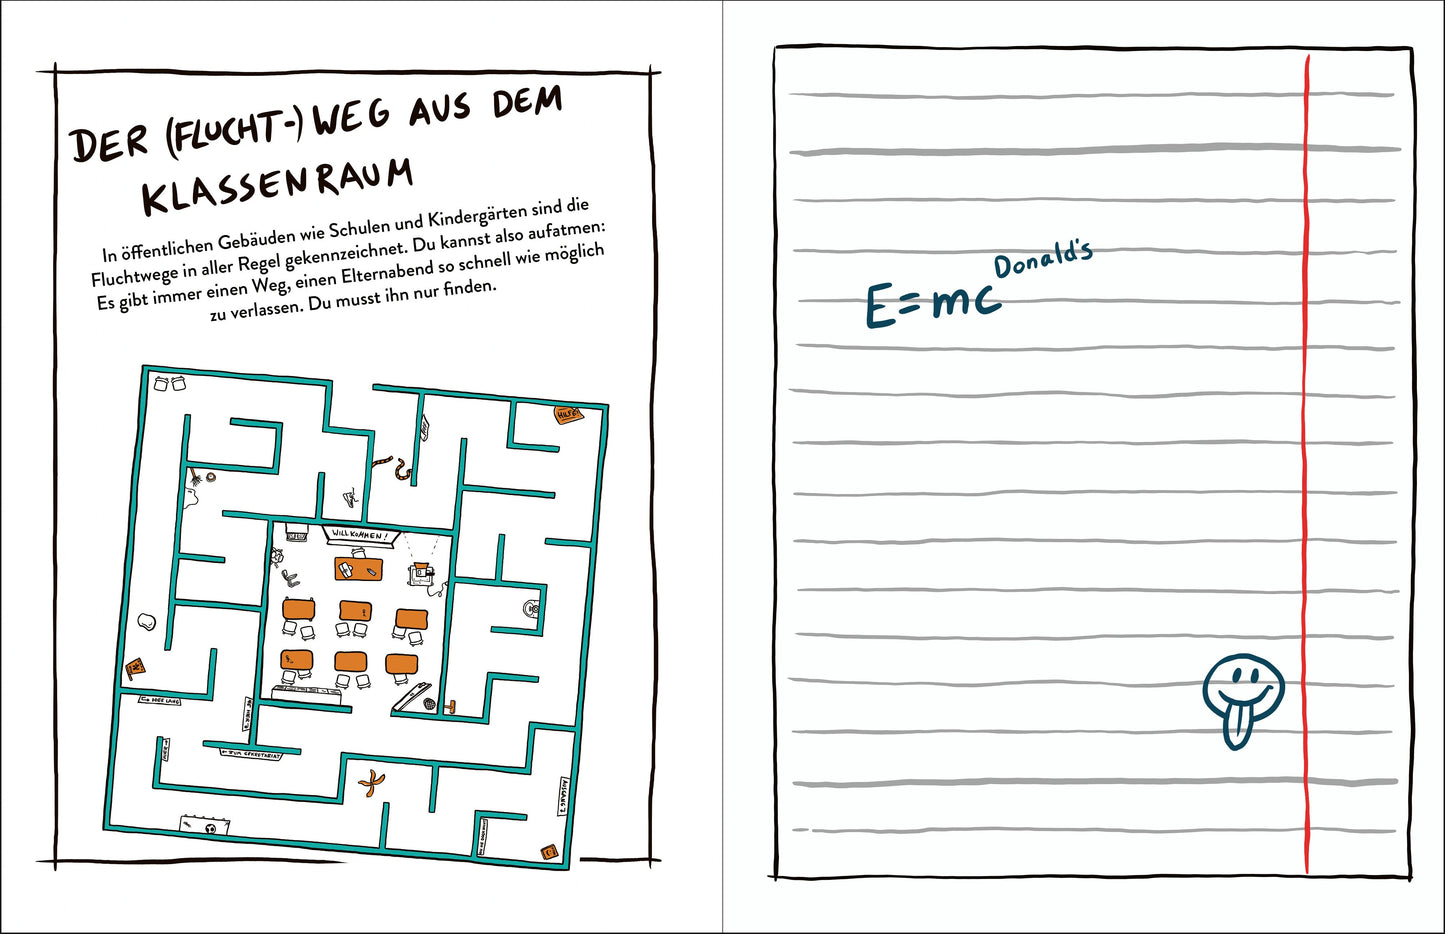 DER (FLUCHT-) WEG AUS DEM
KLASSENRAUM
In öffentlichen Gebäuden wie Schulen und Kindergärten sind die
Fluchtwege in aller Regel gekennzeichnet. Du kannst also aufatmen:
Es gibt immer einen Weg, einen Elternabend so schnell wie möglich
zu verlassen. Du musst ihn nur finden.
HILFE!
WILLKOMMEN!
← ZUM SEKRETARIAT
AUSGANG?
E=mc Donald's